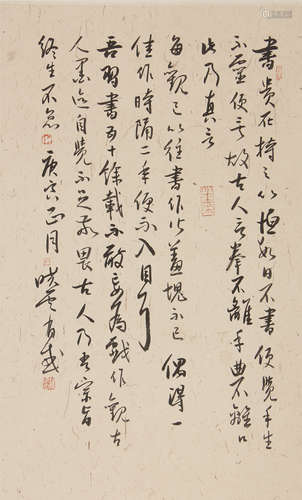 書貴在持之以恆數日不書便覺手生
不靈便言故古人言拳不離手曲不離口
此乃真言
每觀己以往書作皆羞愧不已偶得一
佳作時隔二年便不入目
吾習書五十餘載不敢妄為戲作觀古
人墨迹自覺不足敬畏古人乃吾宗旨
終生不怠庚寅正月